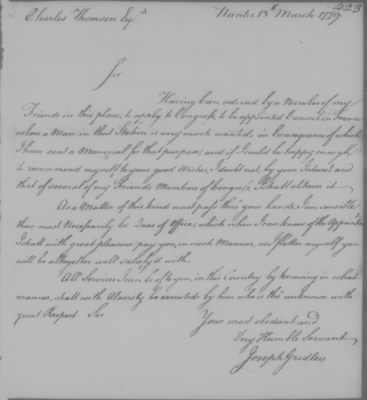 423
Charles Thomson Esqr. Nantes 13th March 1779
Sir
Having been advised by a Number of my
Friends in this place, to apply to Congress, to be appointed Consul in France
where a Man in that Station is very much wanted, in Consequence of which
I have sent a Memorial for that purpose; and if I could be happy enough,
to recommend myself to your good Wishes, I doubt not, by your Interest and
that of several of my Friends Members of Congress, I shall obtain it.
As a Matter of this kind must pass thro' your hands, I am sensible
there must Necessarily be Dues of Office, which when I can know of the Appointmt
I shall with great pleasure pay you, in such Manner, as I flatter myself you
will be altogether well satisfy'd with.
All Services I can be of to you, in this Country by knowing in what
manner, shall with Alacrity be executed by him who is tho' unknown with
great Respect Sir
Your most obedient and
Very Humble Servant
Joseph Gridley